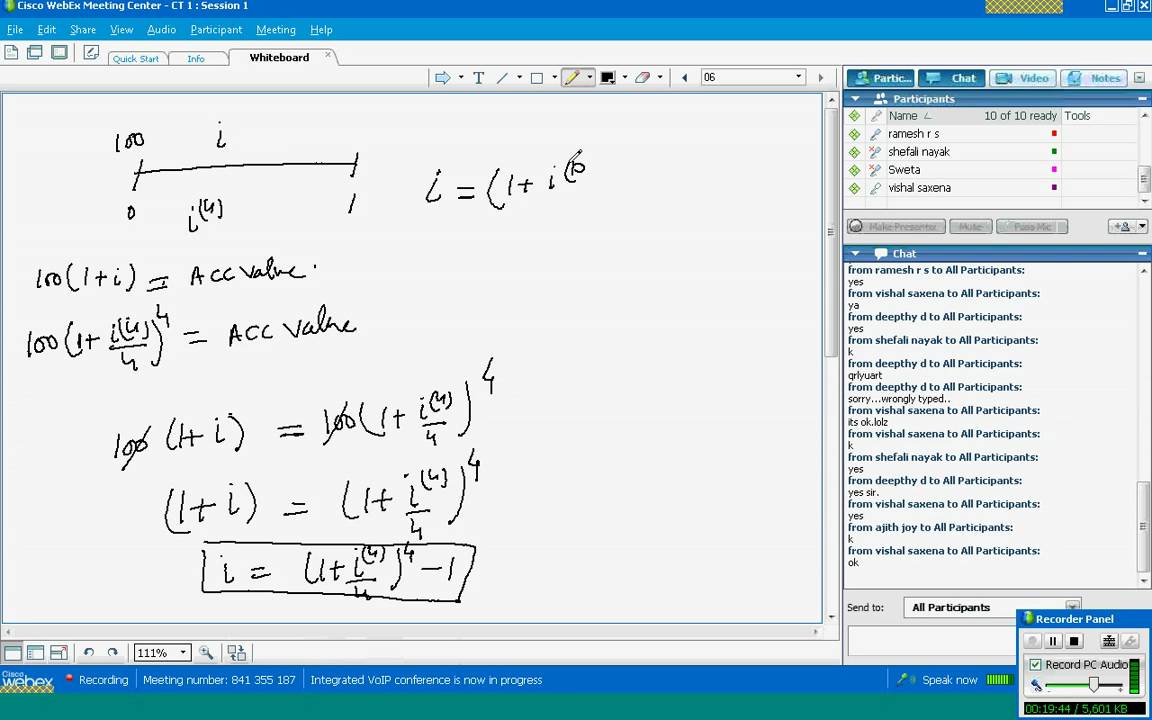 Cisco WebEx Meeting Center - CT 1 : Session 1
File Edit Share View Audio Participant Meeting Help
Quick Start Info Whiteboard
T 06
Partic... Chat Video Notes
Participants
Name 10 of 10 ready Tools
ramesh r s
shefali nayak
Sweta
vishal saxena
Make Presenter Mute Pass Mic
100 i
0 i^(4) 1
i = (1+ i^(
100(1+i) = Acc Value
100(1+ i^(4)/4)^4 = Acc Value
100 (1+ i) = 100(1+ i^(4)/4)^4
(1+ i) = (1+ i^(4)/4)^4
i = (1+ i^(4)/4)^4 - 1
Chat
from ramesh r s to All Participants:
yes
from vishal saxena to All Participants:
ya
from deepthy d to All Participants:
yes
from shefali nayak to All Participants:
k
from deepthy d to All Participants:
qrlyuart
from deepthy d to All Participants:
sorry...wrongly typed..
from vishal saxena to All Participants:
its ok.lolz
from vishal saxena to All Participants:
k
from shefali nayak to All Participants:
yes
from deepthy d to All Participants:
yes sir.
from vishal saxena to All Participants:
yes
from ajith joy to All Participants:
k
from vishal saxena to All Participants:
ok
Send to: All Participants
Recorder Panel
Record PC Audio
00:19:44 / 5,601 KB
111%
Cisco webex Recording Meeting number: 841 355 187 Integrated VoIP conference is now in progress Speak now